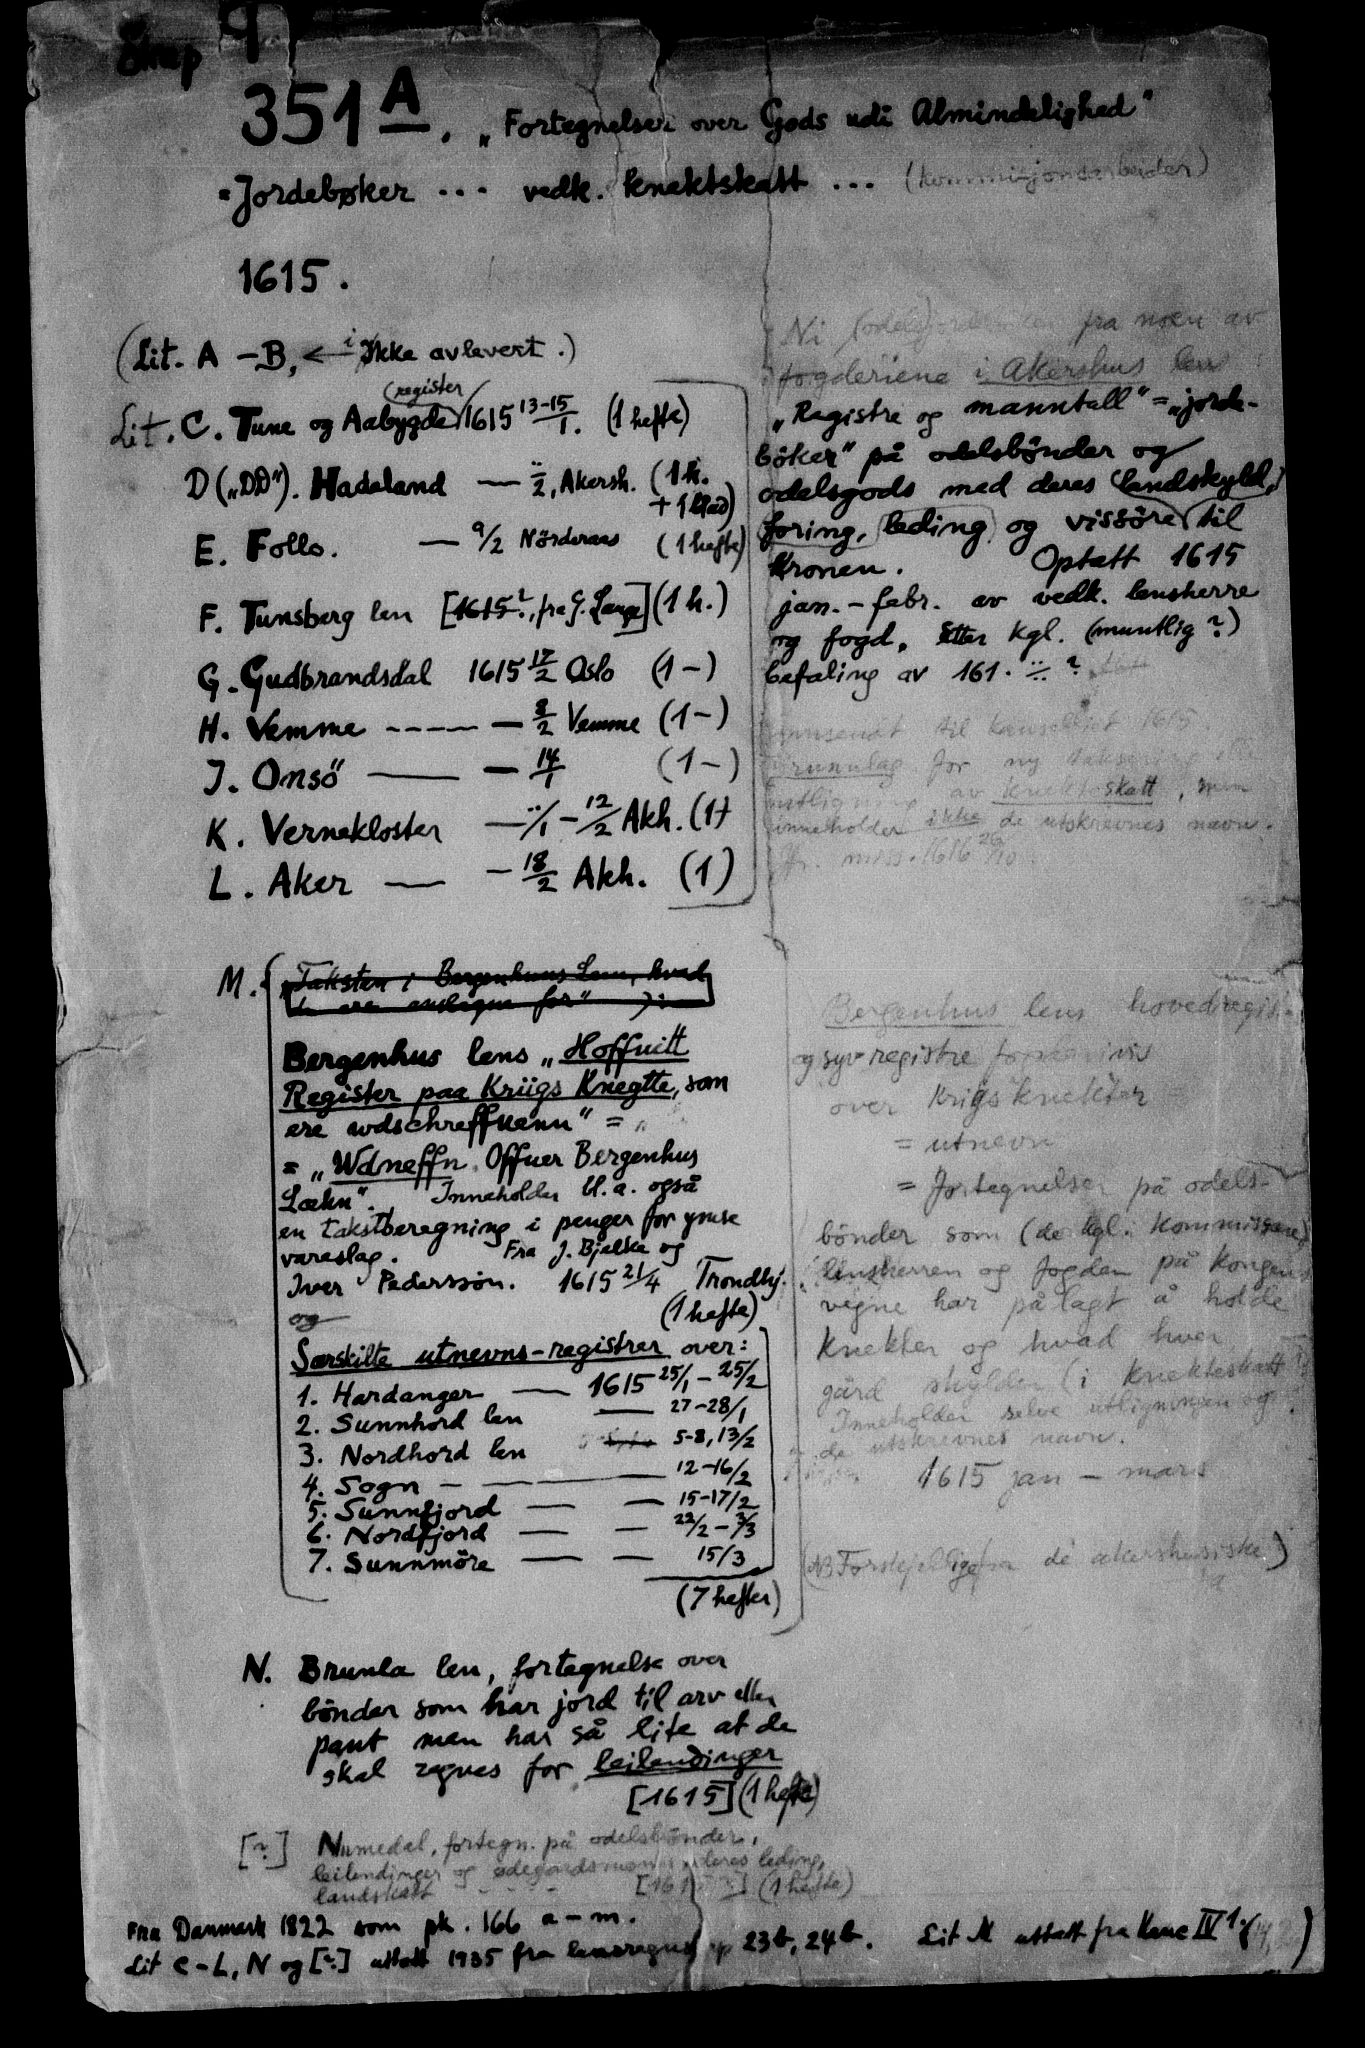 351 A. „Fortegnelser over Gods udi Almindelighed"
= Jordebøker ... vedk. knektskatt ... (kommisjonsarbeider)
1615.
(Lit. A - B, ← ikke avlevert.)
(register
Lit. C. Tune og Aabygde) 1615 13-15/1. (1 hefte)
D („DD"). Hadeland — ../2, Akersh. (1 h.
+ 1 blad)
E. Follo. — 9/2 Nörderaas (1 hefte)
F. Tunsberg len [1615?, fra G. Lange] (1 h.)
G. Gudbrandsdal 1615 17/2 Oslo (1 -)
H. Vemme ----- — 8/2 Vemme (1 -)
J. Onsö —— — 14/1 (1 -)
K. Vernekloster — ../1 - 12/2 Akh. (1 -)
L. Aker — - 18/2 Akh. (1)
Ni fra noen av
fogderiene i Akershus len
„Registre og manntall" = „jorde-
böker" på odelsbönder og
odelsgods med deres landskyld,
foring, leding og vissöre til
Kronen. Optatt 1615
jan. - febr. av vedk. lensherre
og fogd, etter kgl. (muntlig?)
befaling av 161. ?
til kanselliet 1615.
grunnlag for ny
utligning av knektskatt, men
inneholder ikke de utskrevnes navn.
miss. 1616 26/10
M. „Taksten i Bergenhus Len, hvad
for" ):
Bergenhus lens „Hoffuitt
Register paa Kriigs Knegtte, som
ere wdschreffuenn" =
= „Wdneffn Offuer Bergenhus
Læhn". Inneholder bl.a. også
en takstberegning i penger for ymse
vareslag. Fra J. Bjelke og
Iver Pederssøn. 1615 21/4 Trondhj.
og (1 hefte)
Særskilte utnevns-registrer over:
1. Hardanger — 1615 25/1 - 25/2
2. Sunnhord len — 27-28/1
3. Nordhord len 5-8, 13/2
4. Sogn — — 12-16/2
5. Sunnfjord — — 15-17/2
6. Nordfjord — — 22/2 - 3/3
7. Sunnmöre — — 15/3
(7 hefter)
Bergenhus lens hovedregis-
og syv registre
over Krigsknekter
= utnevn
= fortegnelser på odels-
bönder som (de kgl. kommissærer)
lensherren og fogden på kongens
vegne har pålagt å holde
knekter og hvad hver
gård skylder (i knekteskatt
Inneholder selve utligningen og
de utskrevnes navn.
1615 jan - mars
(NB Forskjellige fra de akershusiske)
N. Brunla len, fortegnelse over
bönder som har jord til arv eller
pant men har så lite at de
skal regnes for leilendinger
[1615] (1 hefte)
[?] Numedal, fortegn. på odelsbönder,
leilendinger og ödegårdsmenn, deres leding,
landskatt - - - - (1 hefte)
Fra Danmark 1822 som pk. 166 a - m.
Lit C - L, N og [?] uttatt 1935 fra lensregnsk. 23b, 24b. Lit M uttatt fra Kanc IV 1.